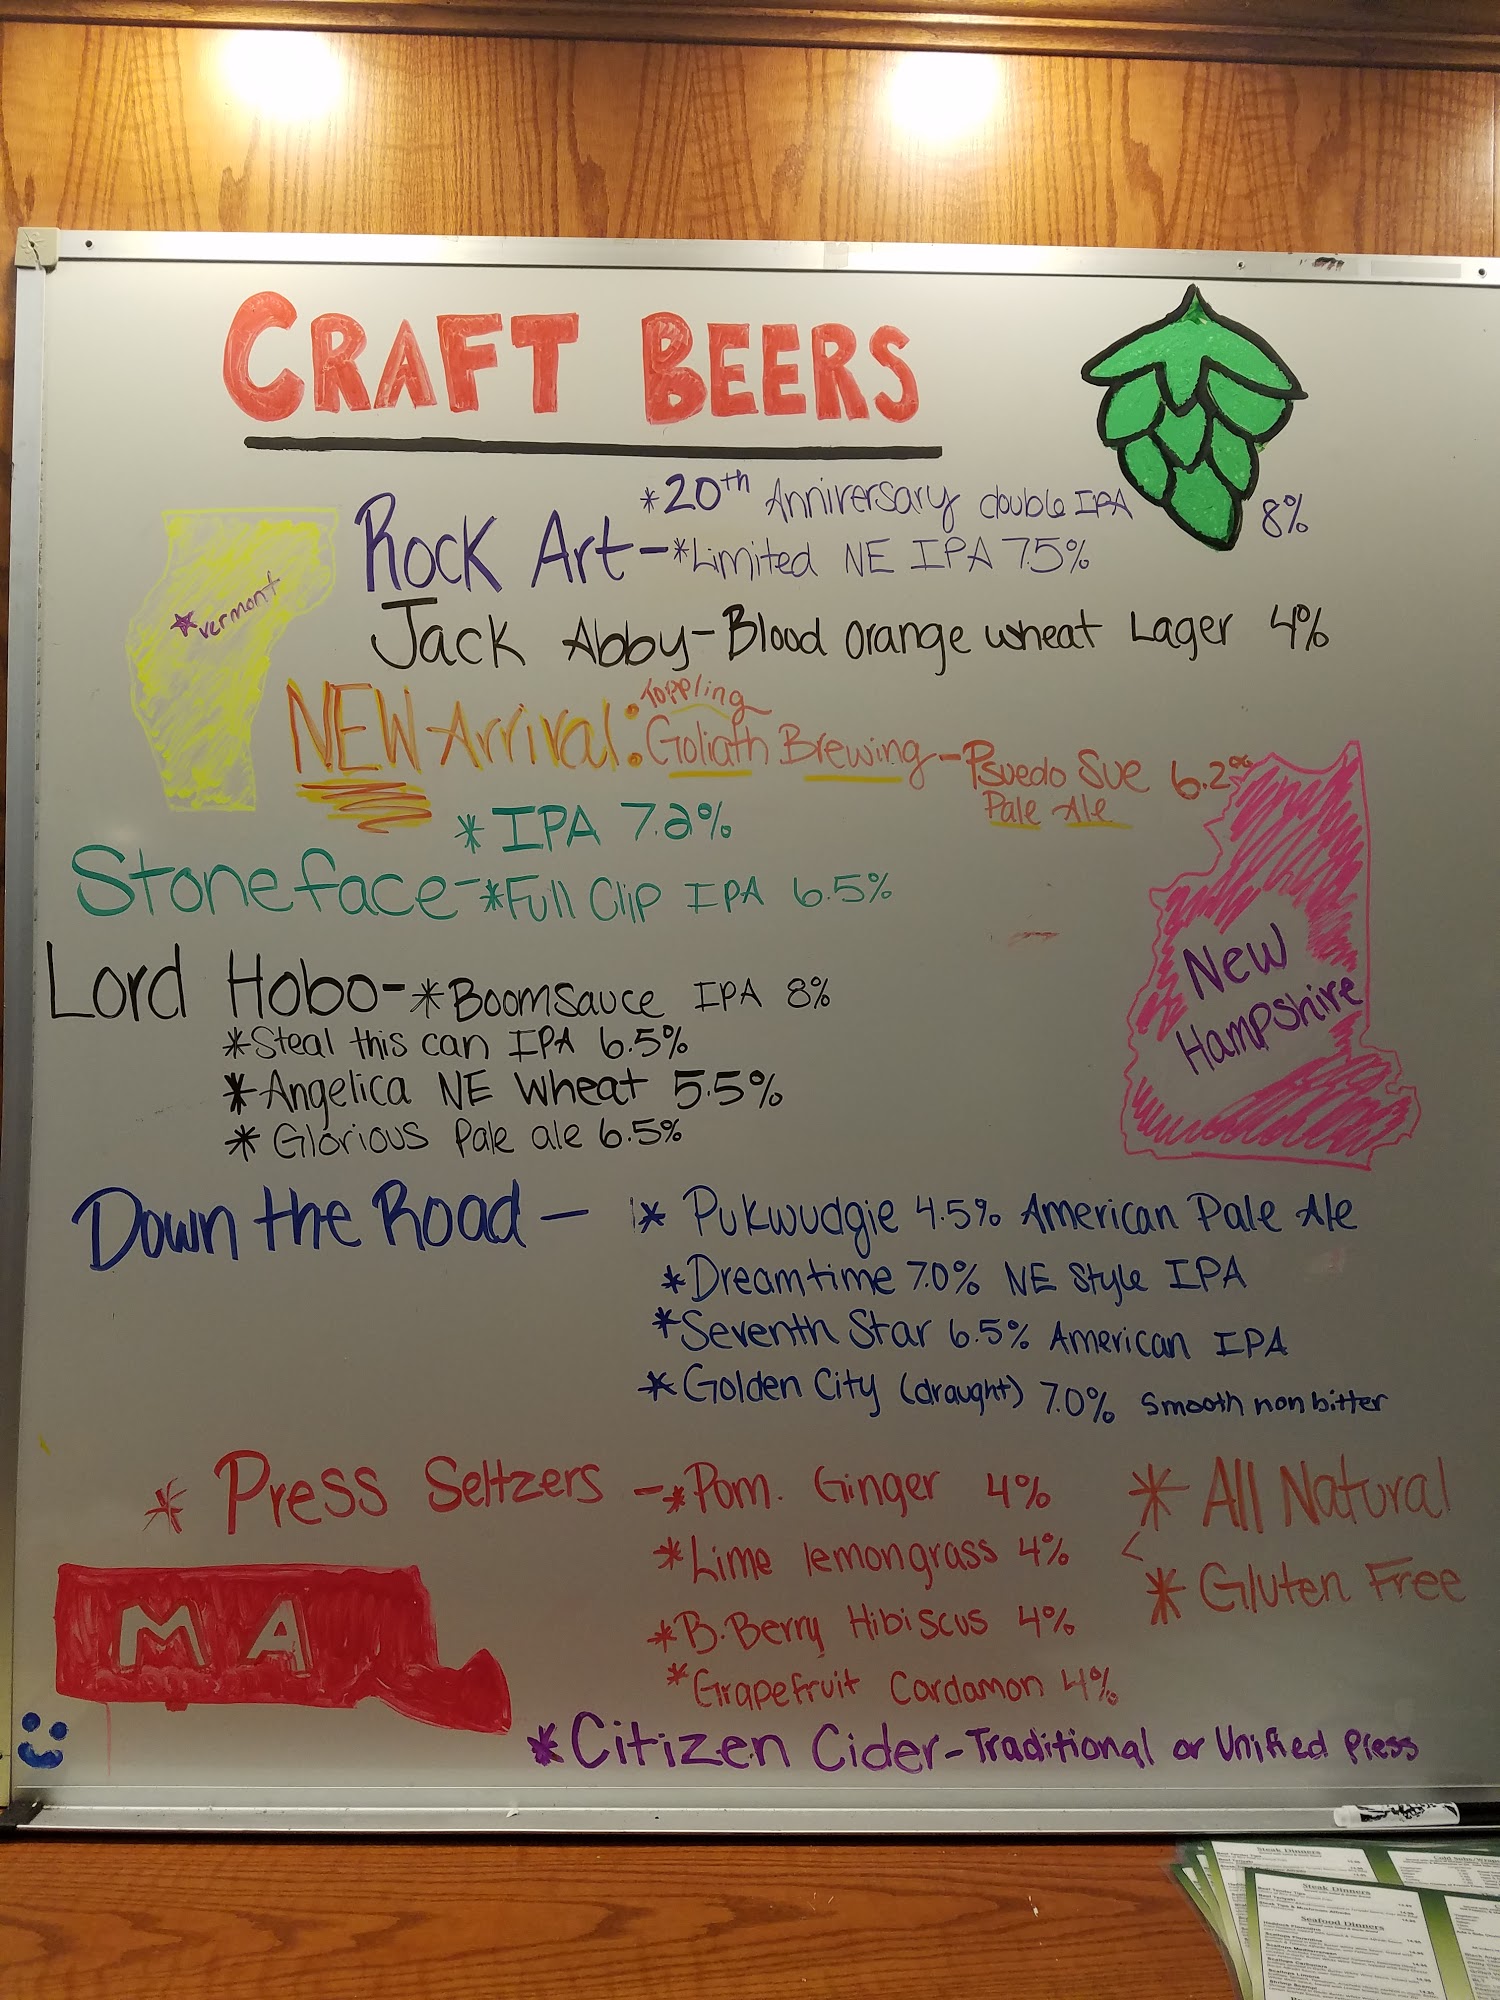 CRAFT BEERS
*20th Anniversary double IPA 8%
Rock Art - *Limited NE IPA 7.5%
*vermont
Jack Abby - Blood orange wheat Lager 4%
NEW Arrival: Toppling Goliath Brewing - Psuedo Sue 6.2%
Pale Ale
*IPA 7.2%
Stoneface - *Full Clip IPA 6.5%
New Hampshire
Lord Hobo - *Boomsauce IPA 8%
*Steal this can IPA 6.5%
*Angelica NE Wheat 5.5%
*Glorious Pale ale 6.5%
Down the Road - * Pukwudgie 4.5% American Pale Ale
*Dreamtime 7.0% NE Style IPA
*Seventh Star 6.5% American IPA
*Golden City (draught) 7.0% Smooth non bitter
* Press Seltzers - *Pom. Ginger 4% * All Natural
*Lime lemongrass 4%
* Gluten Free
*B.Berry Hibiscus 4%
*Grapefruit Cardamon 4%
MA
*Citizen Cider - Traditional or Unified Press
Steak Dinners
Steak Dinners
Seafood Dinners